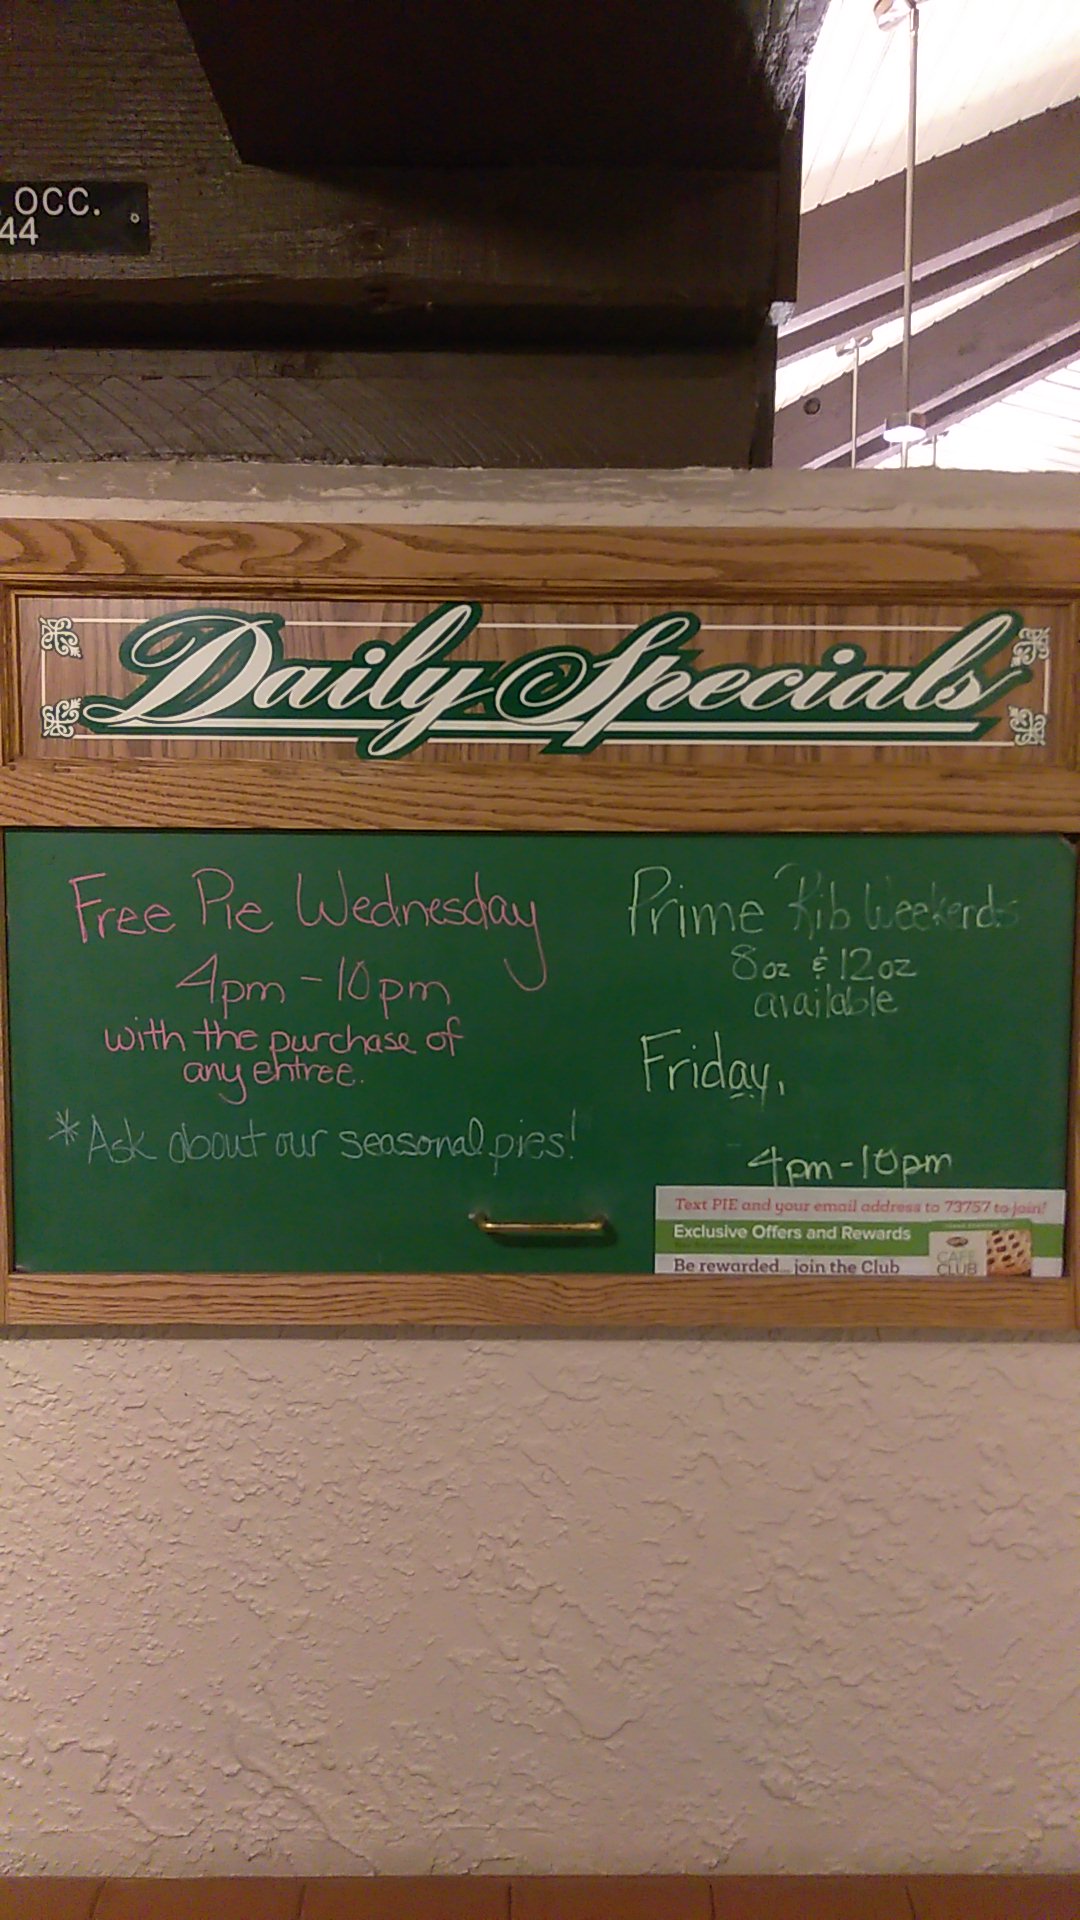 OCC.
44
Daily Specials
Free Pie Wednesday
4pm - 10pm
with the purchase of
any entree.
*Ask about our seasonal pies!
Prime Rib Weekends
8oz & 12oz
available
Friday,
4pm - 10pm
Text PIE and your email address to 73757 to join!
Exclusive Offers and Rewards
Be rewarded... join the Club
CAFE
CLUB